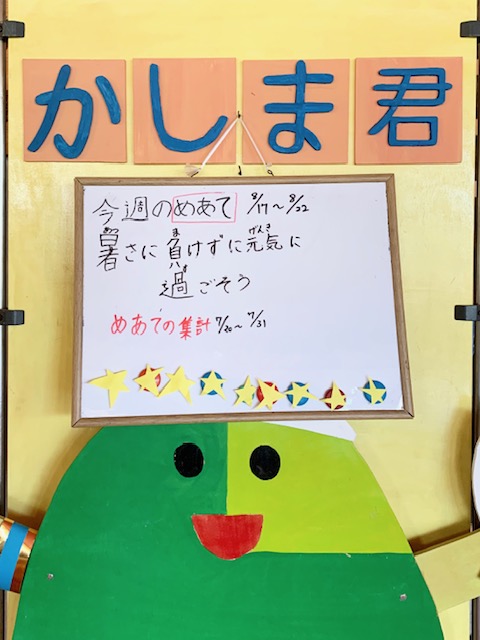 かしま君
今週のめあて 8/17～8/22
暑さに負けずに元気に
過ごそう
めあての集計 7/20～7/31